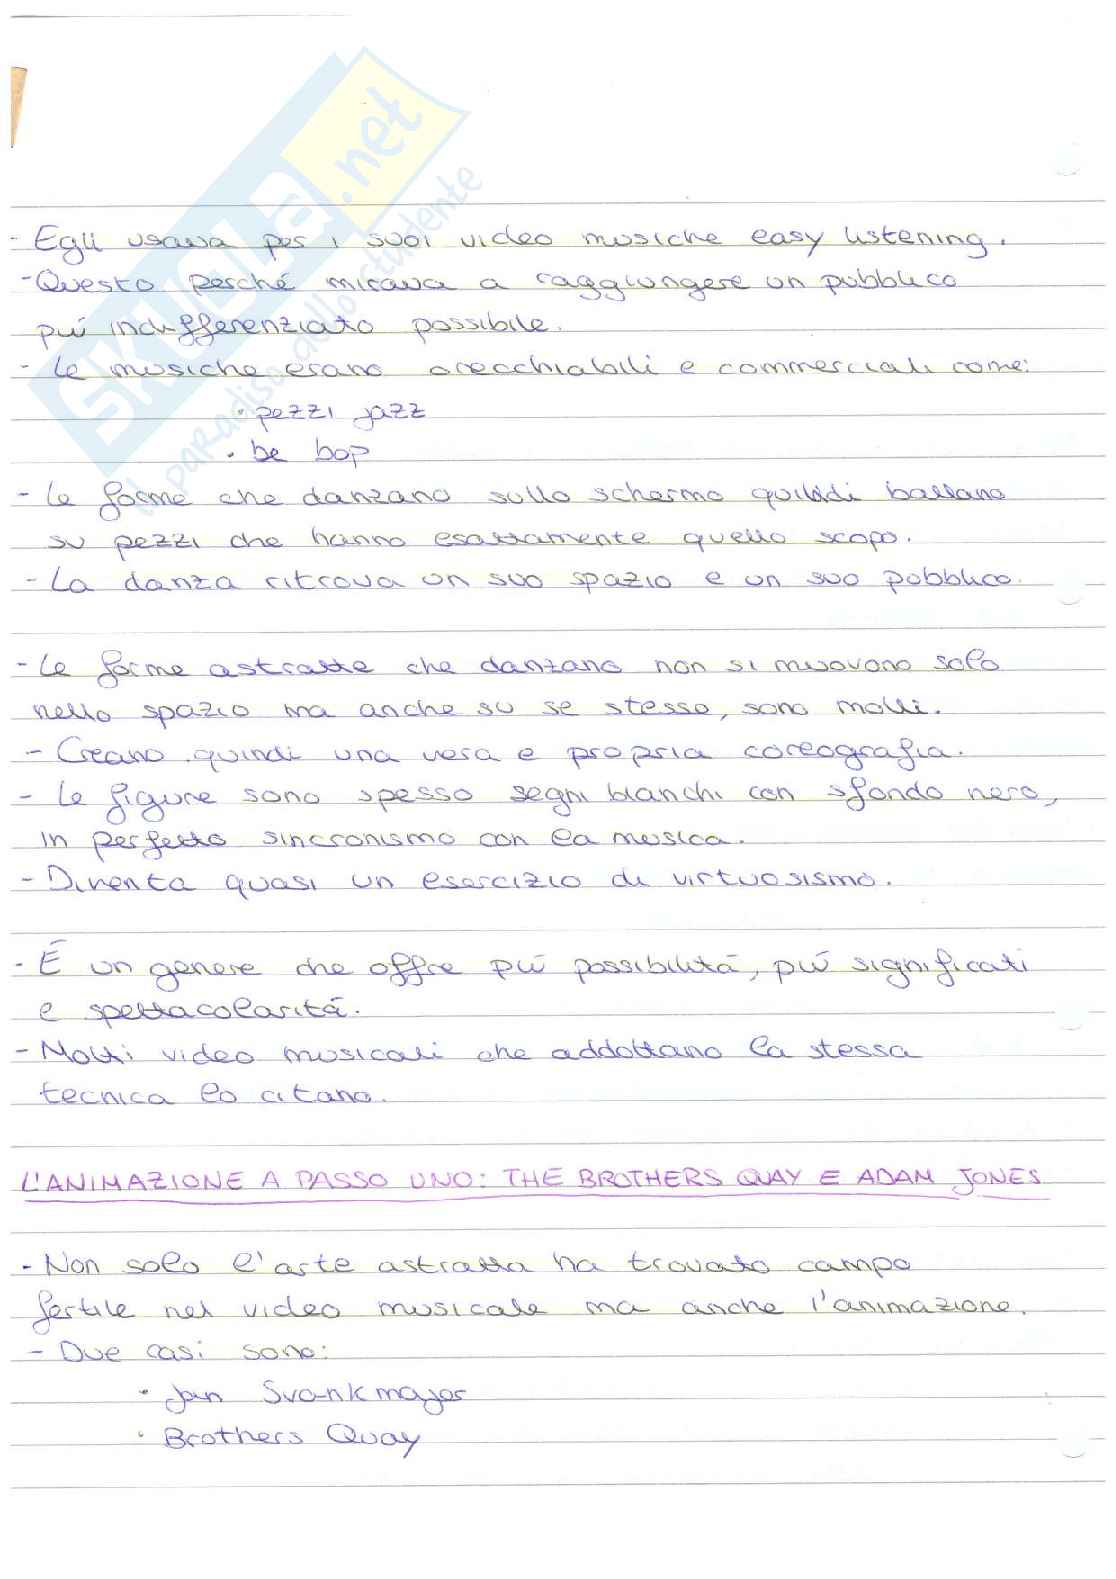 SKUOLA.net
il paradiso dello studente
- Egli usava per i suoi video musiche easy listening.
- Questo perché mirava a raggiungere un pubblico
piú indifferenziato possibile.
- Le musiche erano orecchiabili e commerciali come:
• pezzi jazz
• be bop
- Le forme che danzano sullo schermo quindi ballano
su pezzi che hanno esattamente quello scopo.
- La danza ritrova un suo spazio e un suo pubblico.
- Le forme astratte che danzano non si muovono solo
nello spazio ma anche su se stesse, sono molli.
- Creano quindi una vera e propria coreografia.
- Le figure sono spesso segni bianchi con sfondo nero,
in perfetto sincronismo con la musica.
- Diventa quasi un esercizio di virtuosismo.
- É un genere che offre piú possibilitá, piú significati
e spettacolaritá.
- Molti video musicali che addottano la stessa
tecnica lo citano.
L'ANIMAZIONE A PASSO UNO: THE BROTHERS QUAY E ADAM JONES
- Non solo l'arte astratta ha trovato campo
fertile nel video musicale ma anche l'animazione.
- Due casi sono:
• Jan Svankmajer
• Brothers Quay